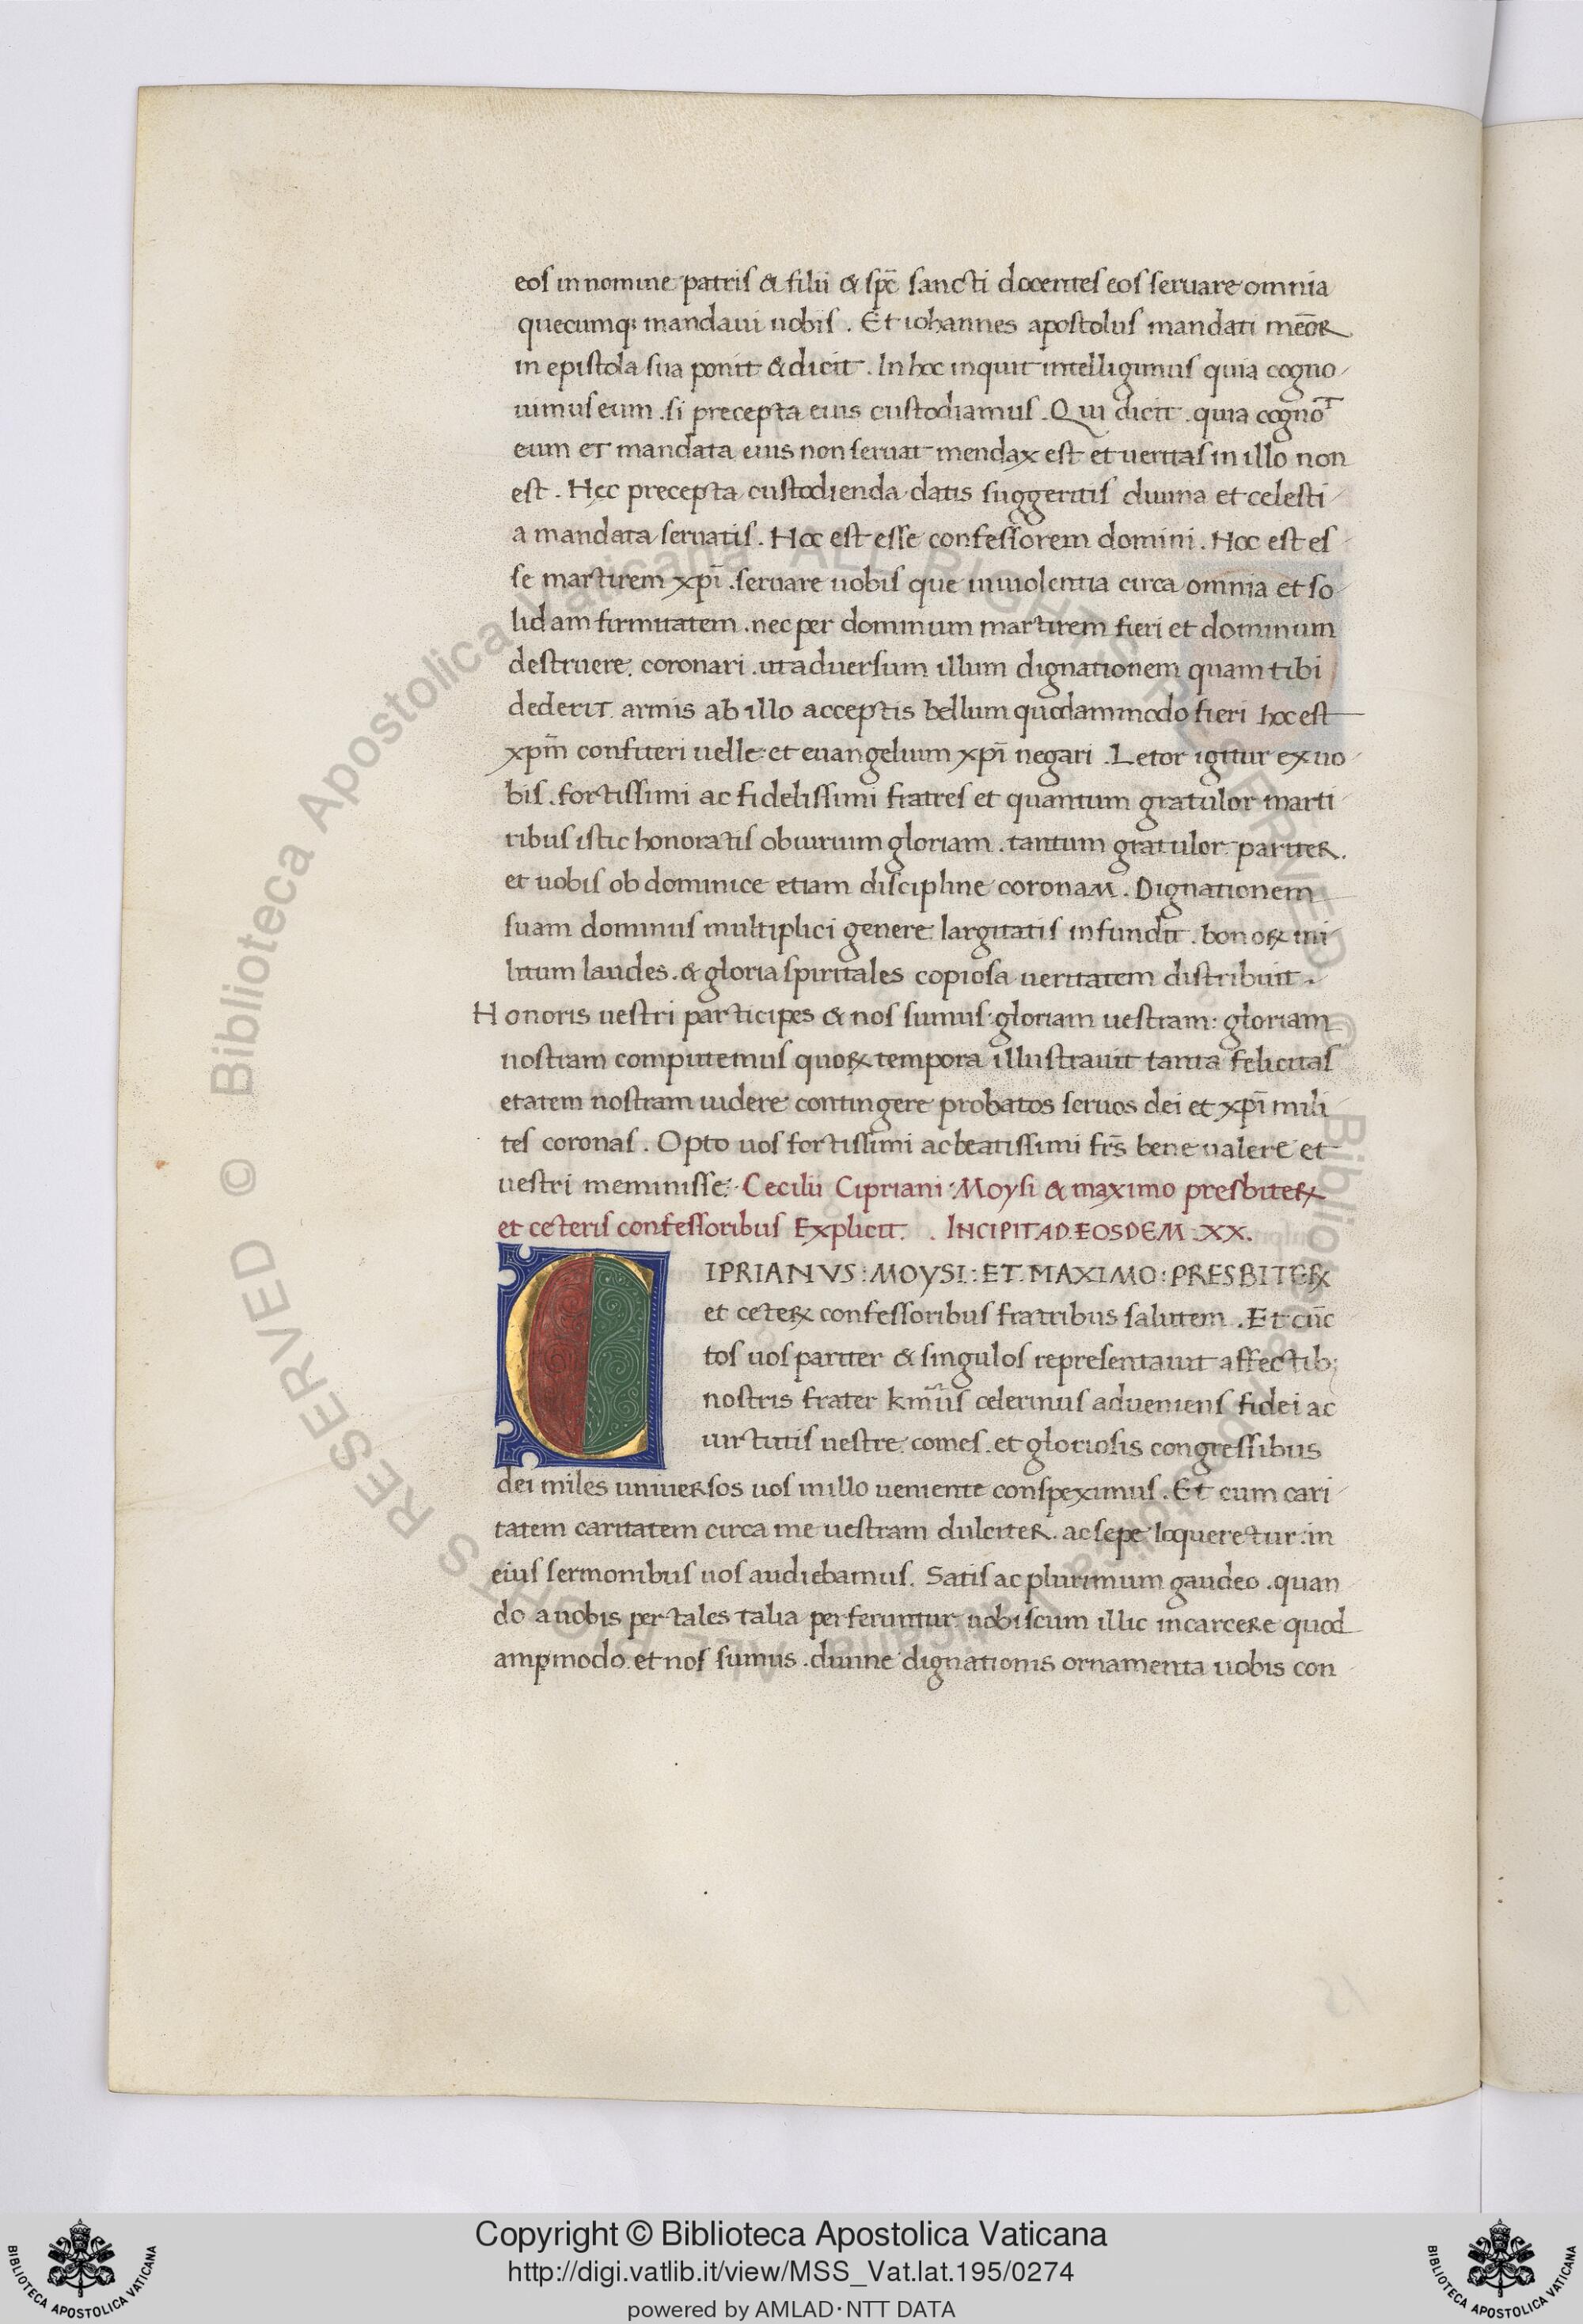 eos in nomine patris & filii & sp̄c sancti docentes eos seruare omnia
quecumq; mandaui uobis . Et iohannes apostolus mandati mēoR
in epistola sua ponit & dicit . In hoc inquit intelligimus quia cogno
uimus eum . si precepta eius custodiamus . Qui dicit . quia cognoT
eum et mandata eius non seruat mendax est et ueritas in illo non
est . Hec precepta custodienda datis suggeritis diuina et celesti
a mandata seruatis . Hoc est esse confessorem domini . Hoc est es
se martirem xp̄i . seruare uobis que inuiolentia circa omnia et so
lidam firmitatem . nec per dominum martirem fieri et dominum
destruere . coronari . ut aduersum illum dignationem quam tibi
dederit armis ab illo acceptis bellum quodammodo fieri hoc est
xp̄m confiteri uelle et euangelium xp̄i negari . Letor igitur ex uo
bis . fortissimi ac fidelissimi fratres et quantum gratulor marti
ribus istic honoratis ob uirium gloriam . tantum gratulor pariter .
et uobis ob dominice etiam discipline coronam . Dignationem
suam dominus multiplici genere largitatis infundit . bonoꝝ mi
litum laudes . & gloria spiritales copiosa ueritatem distribuit .
Honoris uestri participes & nos sumus gloriam uestram : gloriam
nostram computemus quoꝝ tempora illustrauit tanta felicitas
etatem nostram uidere contingere probatos seruos dei et xp̄i mili
tes coronas . Opto uos fortissimi ac beatissimi fr̄s bene ualere et
uestri meminisse : Cecilii Cipriani Moysi & maximo presbiteꝝ
et ceteris confessoribus Explicit . . INCIPIT AD EOSDEM . XX .
CIPRIANVS : MOYSI : ET MAXIMO : PRESBITEꝝ
et ceteꝝ confessoribus fratribus salutem . Et cūc
tos uos pariter & singulos representauit affectib;
nostris frater celerinus adueniens fidei ac
uirtutis uestre comes . et gloriosis congressibus
dei miles uniuersos uos in illo ueniente conspeximus . Et cum cari
tatem caritatem circa me uestram dulciter . ac sepe loqueretur : in
eius sermonibus uos audiebamus . Satis ac plurimum gaudeo . quan
do a uobis per tales talia perferuntur uobiscum illic in carcere quod
ampmodo et nos sumus . diuine dignationis ornamenta uobis con
Copyright © Biblioteca Apostolica Vaticana
http://digi.vatlib.it/view/MSS_Vat.lat.195/0274
powered by AMLAD·NTT DATA
BIBLIOTECA APOSTOLICA VATICANA
BIBLIOTECA APOSTOLICA VATICANA